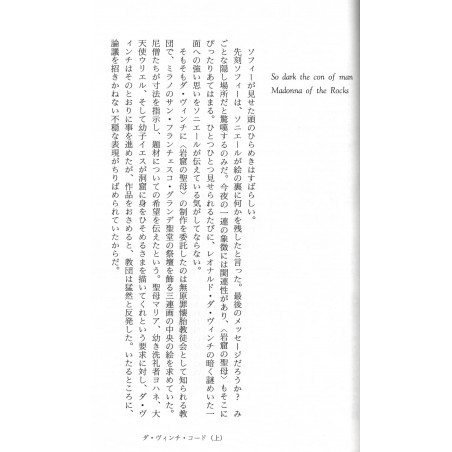 So dark the con of man
Madonna of the Rocks
ソフィーが見せた頭のひらめきはすばらしい。
先刻ソフィーは、ソニエールが絵の裏に何かを残したと言った。最後のメッセージだろうか? み
ごとな隠し場所だと驚嘆するのみだ。今夜の一連の象徴には関連性があり、〈岩窟の聖母〉もそこに
ぴったりあてはまる。ひとつひとつ見せられるたびに、レオナルド・ダ・ヴィンチの暗く謎めいた一
面への強い思いをソニエールが伝えている気がしてならない。
そもそもダ・ヴィンチに〈岩窟の聖母〉の制作を委託したのは無原罪懐胎教徒会として知られる教
団で、ミラノのサン・フランチェスコ・グランデ聖堂の祭壇を飾る三連画の中央の絵を求めていた。
尼僧たちが寸法を指示し、題材についての希望を伝えたという。聖母マリア、幼き洗礼者ヨハネ、大
天使ウリエル、そして幼子イエスが洞窟に身をひそめるさまを描いてくれという要求に対し、ダ・ヴ
ィンチはそのとおりに事を進めたが、作品をおさめると、教団は猛然と反発した。いたるところに、
論議を招きかねない不穏な表現がちりばめられていたからだ。
ダ・ヴィンチ・コード(上)